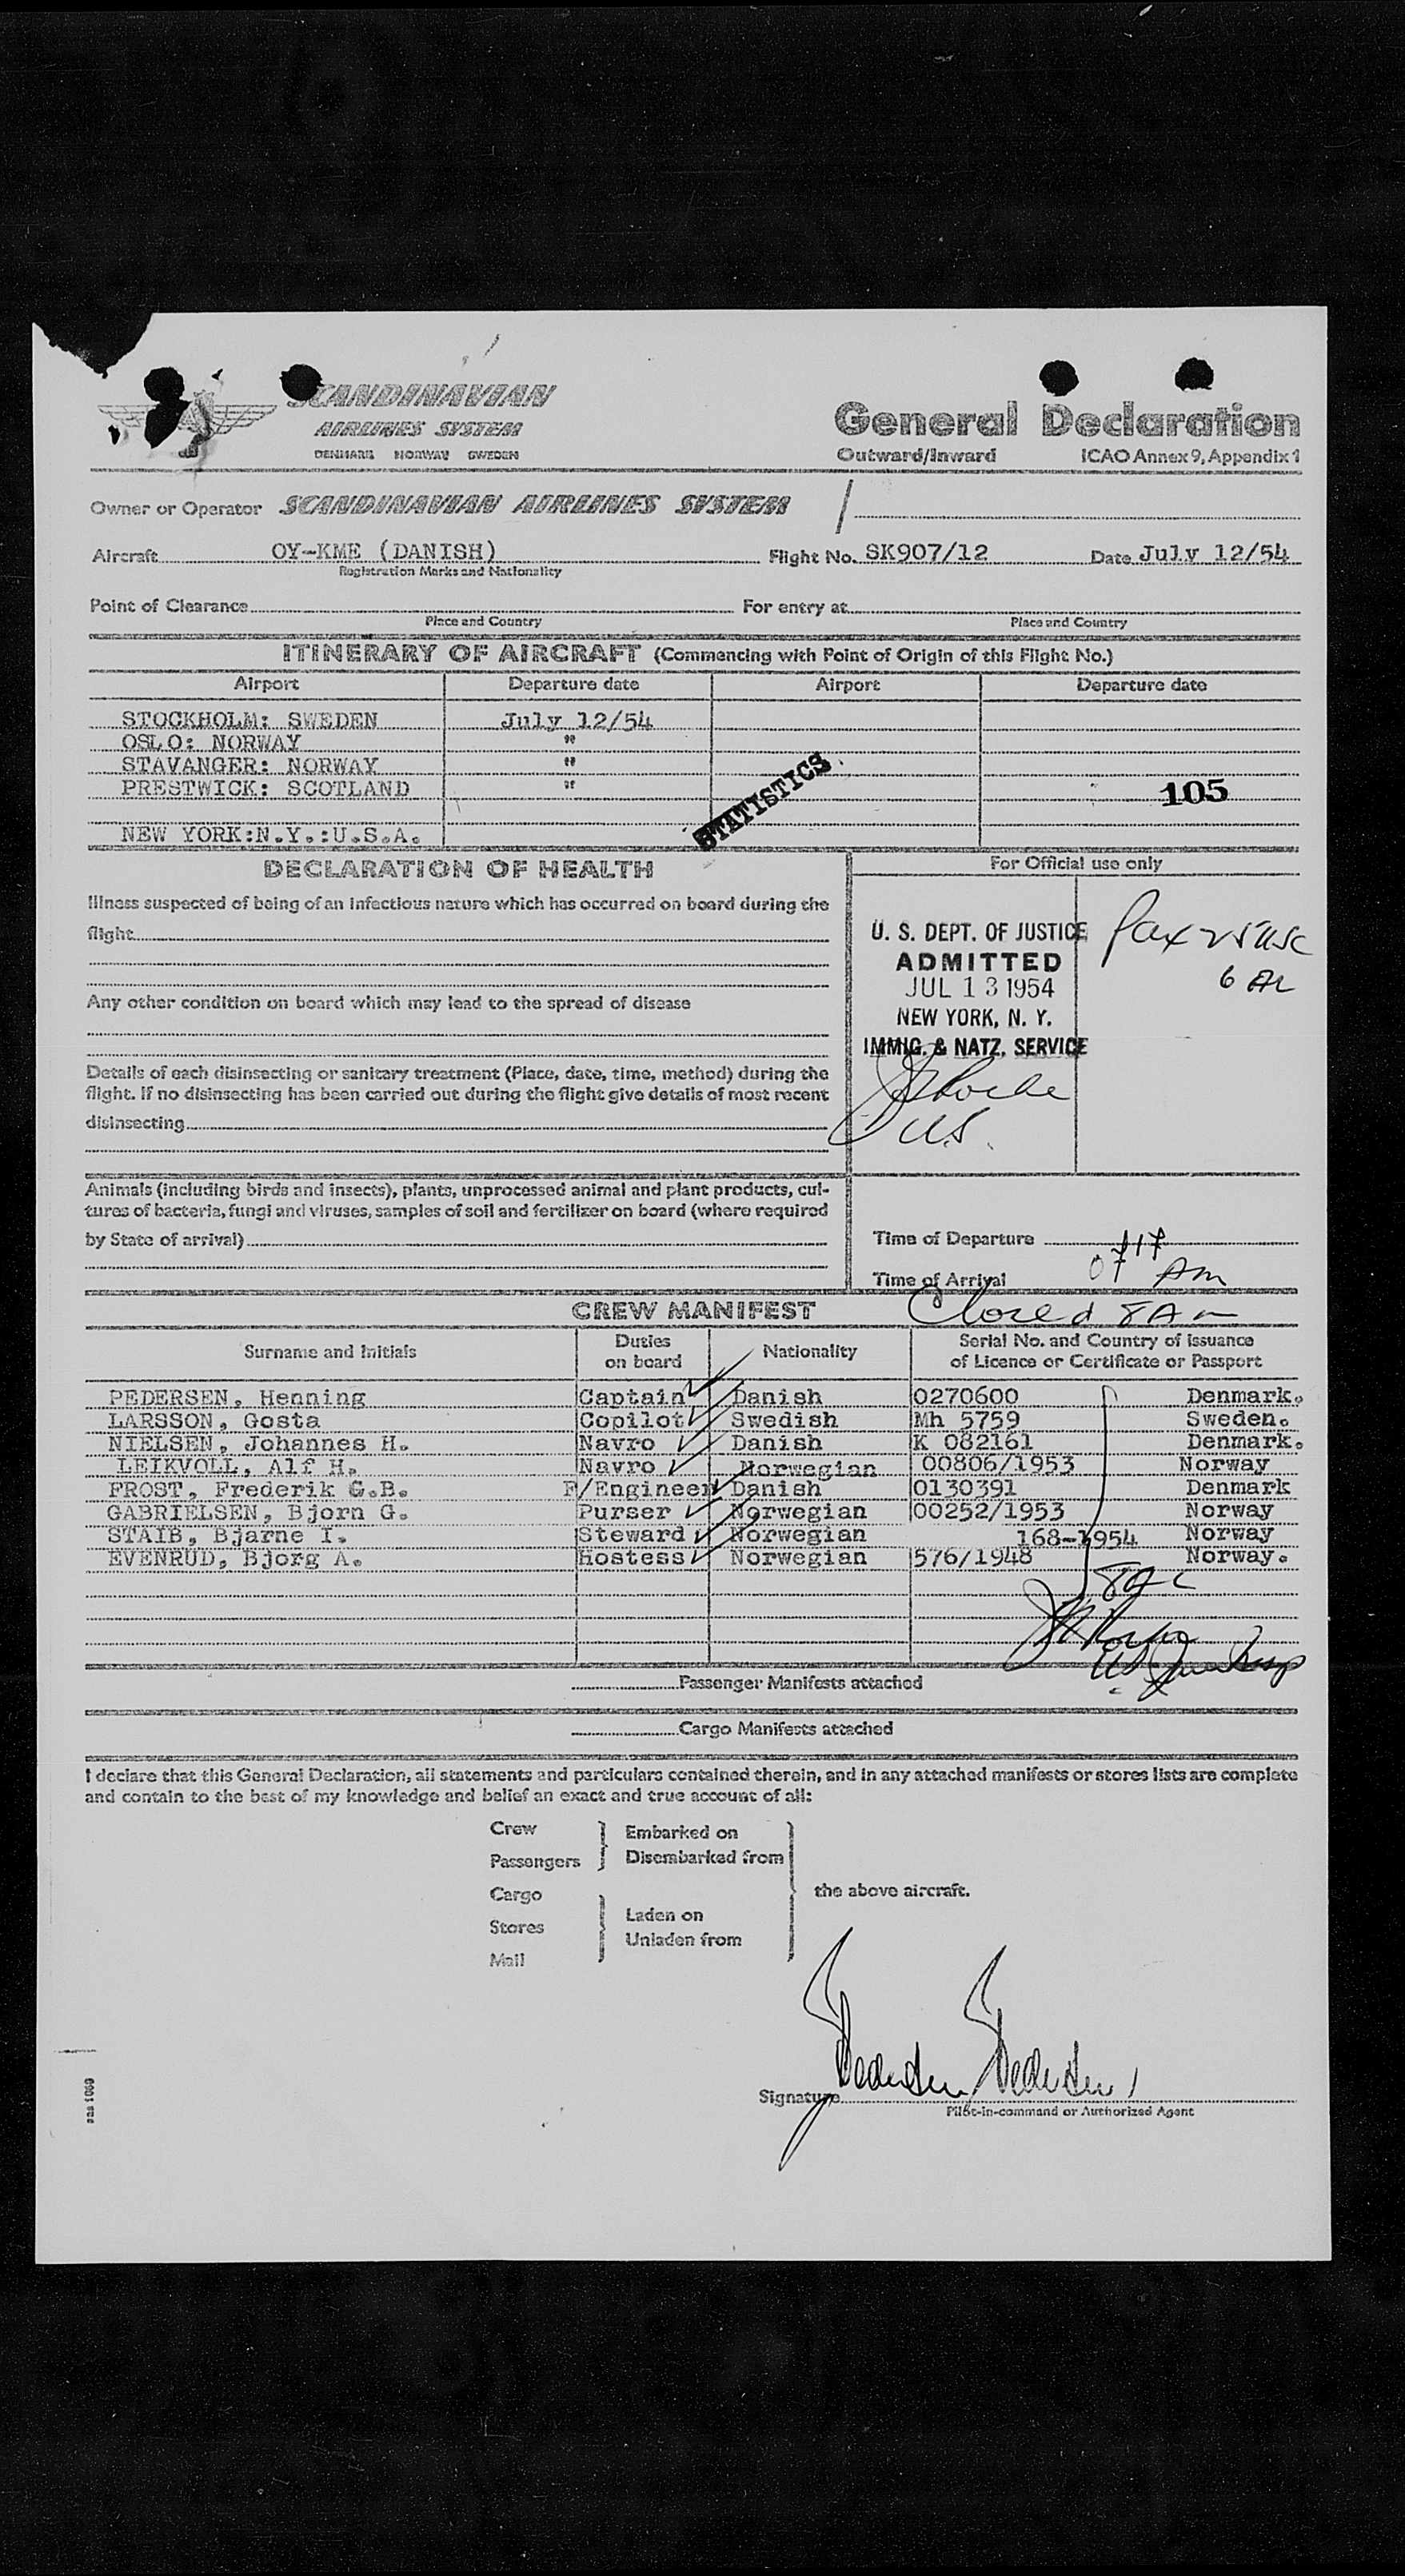 SCANDINAVIAN
AIRLINES SYSTEM
DENMARK NORWAY SWEDEN
General Declaration
Outward/Inward ICAO Annex 9, Appendix 1
Owner or Operator SCANDINAVIAN AIRLINES SYSTEM /
Aircraft OY-KME (DANISH) Flight No. SK907/12 Date July 12/54
Registration Marks and Nationality
Point of Clearance For entry at
Place and Country Place and Country
ITINERARY OF AIRCRAFT (Commencing with Point of Origin of this Flight No.)
Airport Departure date Airport Departure date
STOCKHOLM: SWEDEN July 12/54
OSLO: NORWAY "
STAVANGER: NORWAY "
PRESTWICK: SCOTLAND " 105
STATISTICS
NEW YORK:N.Y.:U.S.A.
DECLARATION OF HEALTH For Official use only
Illness suspected of being of an infectious nature which has occurred on board during the
flight
Any other condition on board which may lead to the spread of disease
Details of each disinsecting or sanitary treatment (Place, date, time, method) during the
flight. If no disinsecting has been carried out during the flight give details of most recent
disinsecting
U. S. DEPT. OF JUSTICE
ADMITTED
JUL 13 1954
NEW YORK, N. Y.
IMMIG. & NATZ. SERVICE
Pax 25 USC
6 AL
Animals (including birds and insects), plants, unprocessed animal and plant products, cul-
tures of bacteria, fungi and viruses, samples of soil and fertilizer on board (where required
by State of arrival)
Time of Departure
Time of Arrival 0717 AM
CREW MANIFEST Closed 8 AM
Surname and Initials Duties on board Nationality Serial No. and Country of issuance of Licence or Certificate or Passport
PEDERSEN, Henning Captain Danish 0270600 Denmark.
LARSSON, Gosta Copilot Swedish Mh 5759 Sweden.
NIELSEN, Johannes H. Navro Danish K 082161 Denmark.
LEIKVOLL, Alf H. Navro Norwegian 00806/1953 Norway
FROST, Frederik G.B. F/Engineer Danish 0130391 Denmark
GABRIELSEN, Bjorn G. Purser Norwegian 00252/1953 Norway
STAIB, Bjarne I. Steward Norwegian 168-1954 Norway
EVENRUD, Bjorg A. Hostess Norwegian 576/1948 Norway.
Passenger Manifests attached
Cargo Manifests attached
I declare that this General Declaration, all statements and particulars contained therein, and in any attached manifests or stores lists are complete
and contain to the best of my knowledge and belief an exact and true account of all:
Crew
Passengers
Embarked on
Disembarked from
Cargo
Stores
Mail
Laden on
Unladen from
the above aircraft.
Signature
Pilot-in-command or Authorized Agent
sas 1069